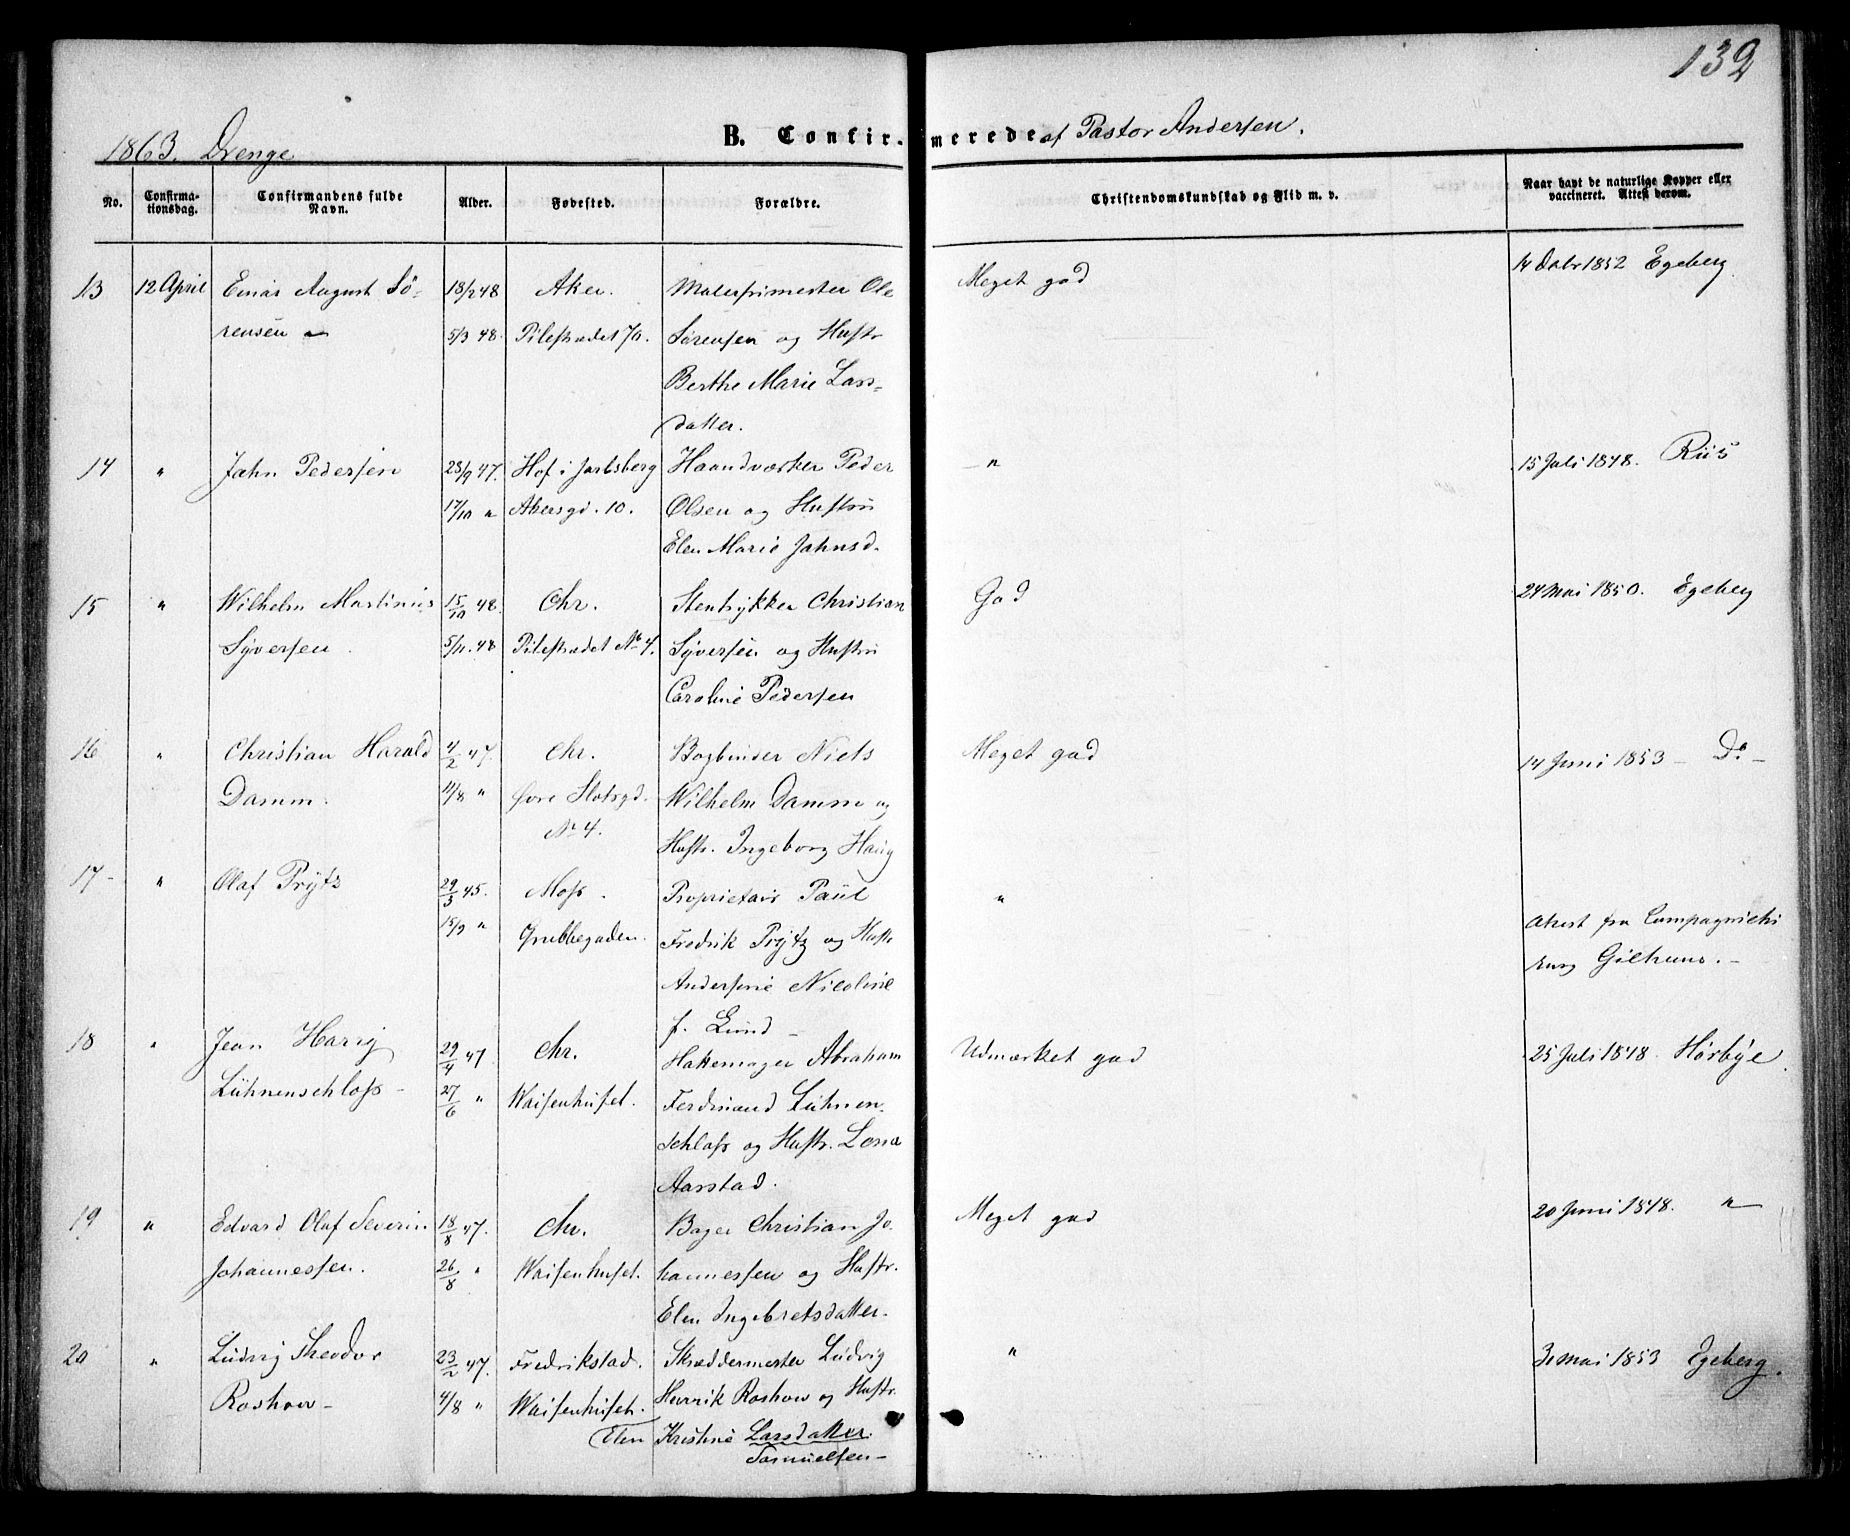 132
1863. Drenge
B. Confirmerede af Pastor Andersen.
No. Confirmationsdag. Confirmandens fulde Navn. Alder. Fødested. Forældre. Christendomskundskab og Flid m. v. Naar havt de naturlige Kopper eller vaccineret. Attest derom.
13 12 April Einar August Sö- 18/2 48 Aker. Malermester Ole Meget god 14 Dcbr 1852 Egeberg
rensen 5/3 48. Pilestrædet 70. Sørensen og Hustr
Berthe Marie Lars-
datter.
14 " Jahn Pedersen 23/9 47. Hof i Jarlsberg Haandværker Peder " 15 Juli 1848. Riis
17/10 " Akersgd. 10. Olsen og Hustru
Elen Marie Jahnsd.
15 " Wilhelm Martinius 15/10 48. Chr. Stentrykker Christian God 24 Mai 1850. Egeberg
Syversen 5/11. 48 Pilestrædet No 4. Syversen og Hustru
Caroline Pedersen
16 " Christian Harald 4/2 47. Chr. Bogbinder Niels Meget god 14 Juni 1853 - Do -
Damm. 11/8 " Øvre Slotsgd. Wilhelm Damm og
No 4. Hustr. Ingeborg Haug
17- " Olaf Prytz 29/3 45. Moss. Proprietair Paul "
15/9 " Grubbegaden. Fredrik Prytz og Hustr Attest fra Compagnichi
Andersine Nicoline rurg Gilhuus. -
f. Lund -
18 " Jean Harry 29/4 47 Chr. Hattemager Abraham Udmærket god 25 Juli 1848. Hørbye
Lühnenschloss - 27/6 " Waisenhuset. Ferdinand Lühnen-
schloss og Hustr. Lovise
Aarstad.
19 " Edvard Olaf Severin 18/8 47. Chr. Bager Christian Jo- Meget god 20 Juni 1848. "
Johannessen. 26/8 " Waisenhuset. hannessen og Hustr.
Elen Ingebretsdatter.
20 " Ludvig Theodor 23/2 47. Fredrikstad. Skræddermester Ludvig " 3 Mai 1853 Egeberg.
Roshow - 4/8 " Waisenhuset. Henrik Roshow og Hustr.
Elen Kristine Larsdatter.
Samuelsen -